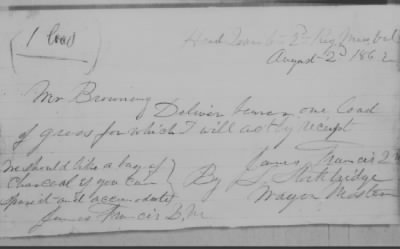 1 load
Head Quar 6 - 2d Reg Mass Vols
August 2d 1862
Mr Browning
Deliver bearer one load
of grass for which I will act by receipt
James Francis 2 M
By S. Stockbridge
Wagon Master
We should like a bag of
Charcoal if you can
spare it and accomodate
James Francis Q.M.